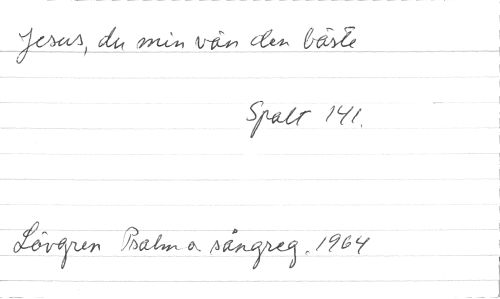 Jesus, du min vän den bäste
Spalt 141.
Lövgren Psalm o sångreg. 1964